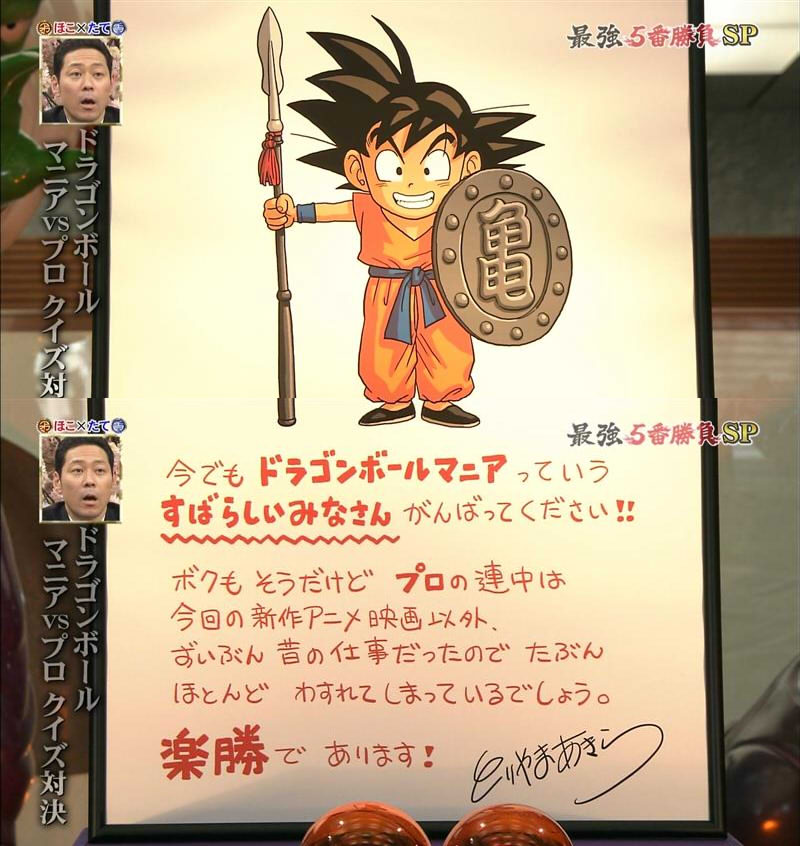 ほこ×たて
最強5番勝負SP
ドラゴンボール
マニアVSプロ クイズ対
亀
ほこ×たて
最強5番勝負SP
ドラゴンボール
マニアVSプロ クイズ対決
今でも ドラゴンボールマニア っていう
すばらしいみなさん がんばってください!!
ボクも そうだけど プロの連中は
今回の新作アニメ映画以外、
ずいぶん 昔の仕事だったので たぶん
ほとんど わすれてしまっているでしょう。
楽勝で あります!
とりやまあきら